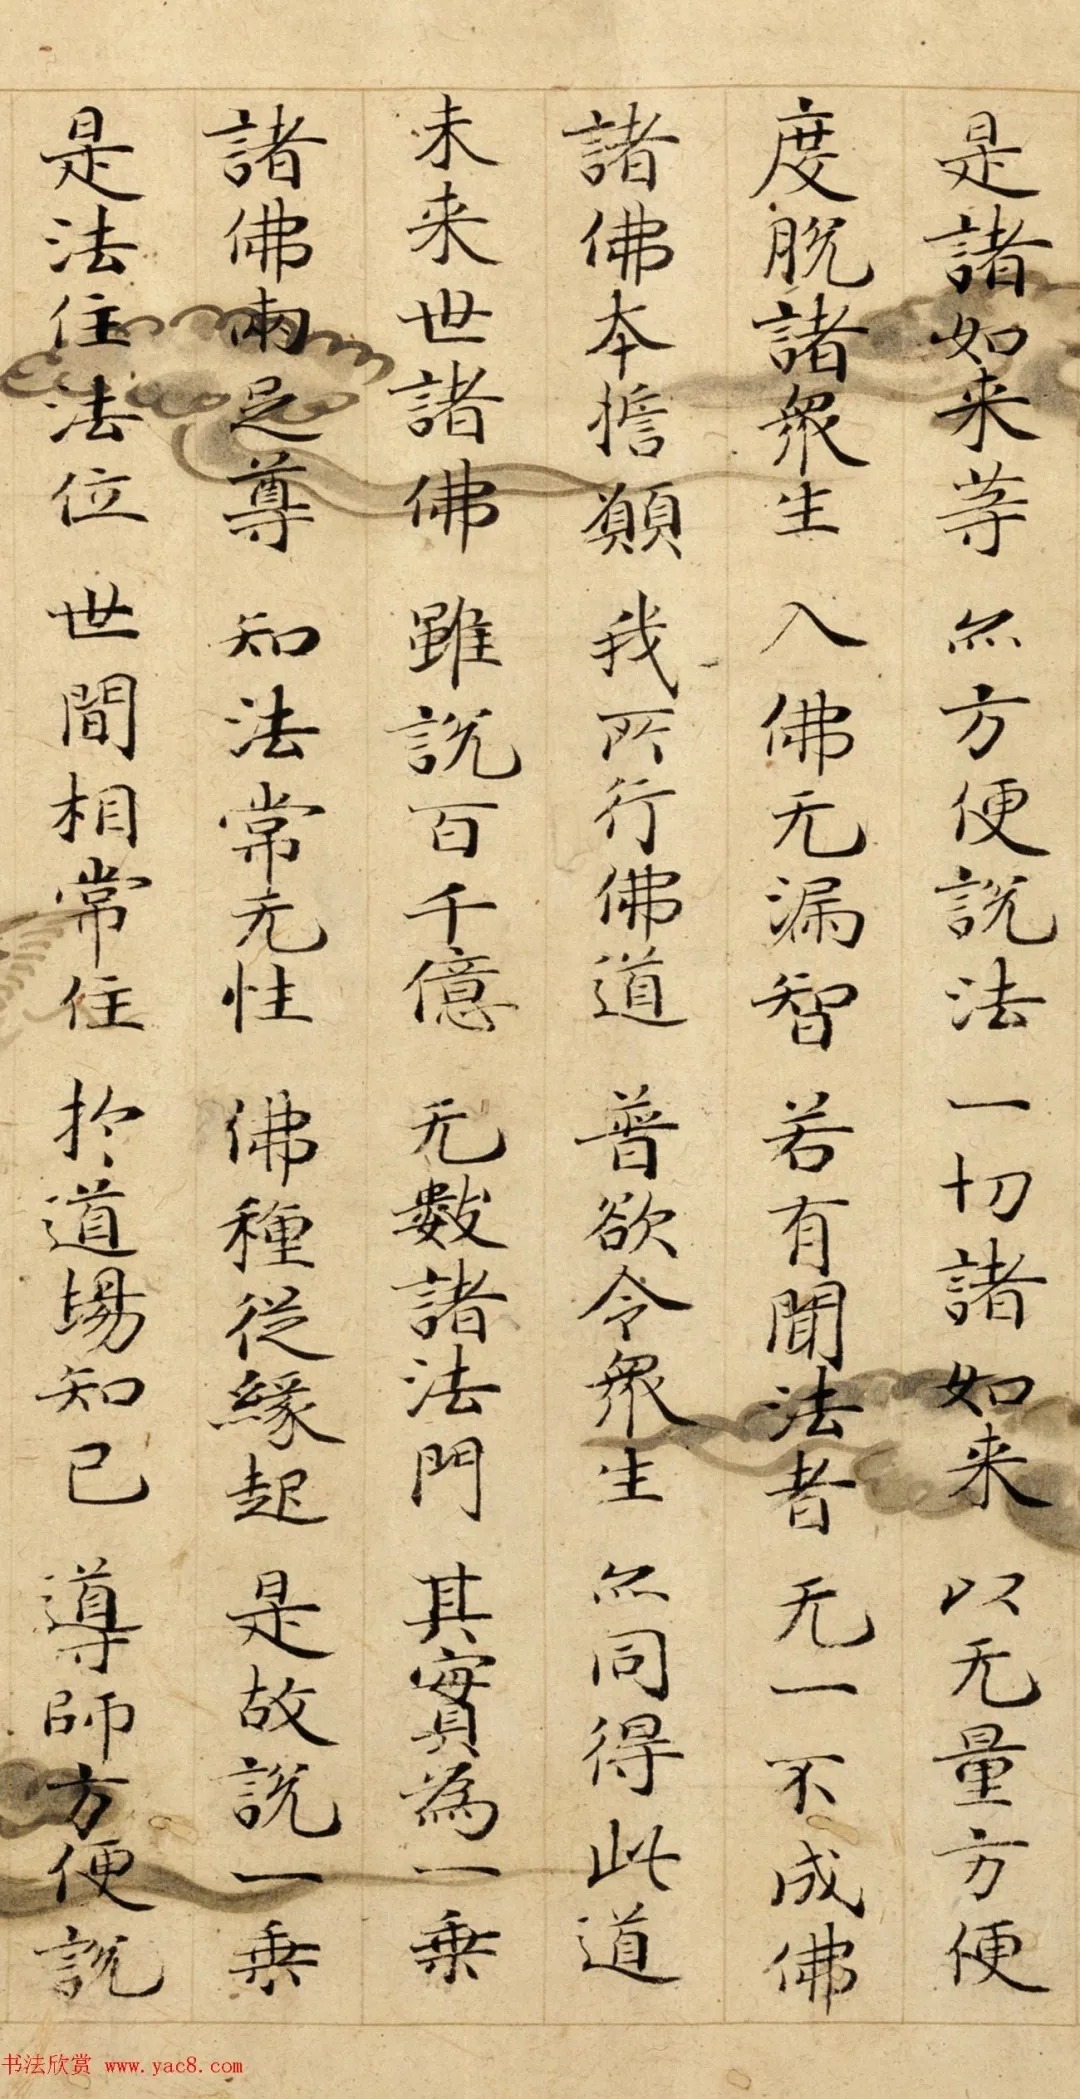 是諸如来等 亦方便説法 一切諸如来 以无量方便
度脱諸衆生 入佛无漏智 若有聞法者 无一不成佛
諸佛本擔願 我所行佛道 普欲令衆生 亦同得此道
未来世諸佛 雖説百千億 无數諸法門 其實為一乗
諸佛兩足尊 知法常无性 佛種従縁起 是故説一乗
是法住法位 世間相常住 於道場知已 導師方便説
书法欣赏 www.yac8.com